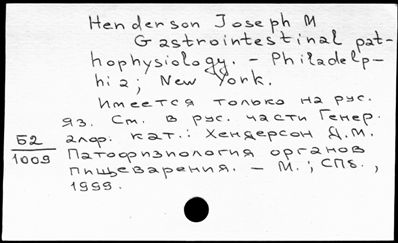 Henderson Joseph M
Gastrointestinal pat-
hophysiology. - Philadelp-
hia; New York.
Имеется только на рус.
яз. См. в рус. части Генер.
алф. кат.: Хендерсон Д.М.
Б2
1009
Патофизиология органов
пищеварения. - М.; СПб.,
1999.